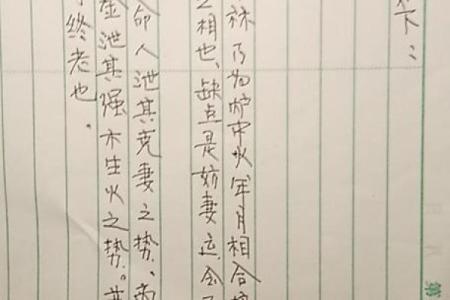 下：
林乃为炉中火年月相合
之相也、缺点是妨妻运、
命人泄其克妻之势、
泄其强木生火之势。
终老也.
第